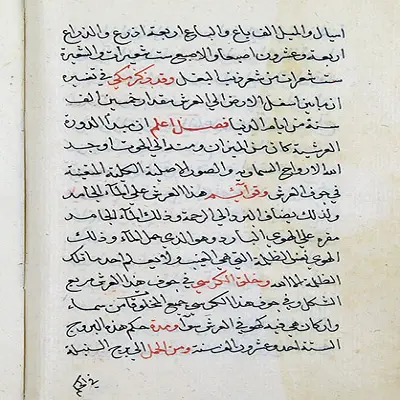 اميال والميل الف باع والباع اربعة اذرع والذراع
اربعة وعشرون اصبعا والاصبع ست شعيرات والشعيرة
ست شعرات من شعر ذنب البغل وقد ذكر مكي في تفسيره
ان ما بين اسفل الارض الى العرش مقدار خمسين الف
سنة من ايام الدنيا فصل اعلم ان مبدأ الدورة
العرشية كان من الميزان ومنتهاه الى الحوت اوجد
الله الارواح السماوية والصور الاصلية الكلية المعينة
في جوف العرش وقوائم هذا العرش على الماء الجامد
ولذلك يضاف البرد الى الرحمة وذلك الماء الجامد
مقره على الهوى البارد وهو الذي جمد الماء وذلك
الهوى نفس الظلمة التي هي الغيب ولا يعلم احد ما تلك
الظلمة الا الله وخلق الكرسي في جوف هذا العرش مربع
الشكل وفي جوف هذا الكرسي جميع المخلوقات من سماء
واركان هي فيه كهو في العرش سوا ومدة حكم هذه البروج
الستة احد وعشرون الف سنة ومن الحمل الى برج السنبلة